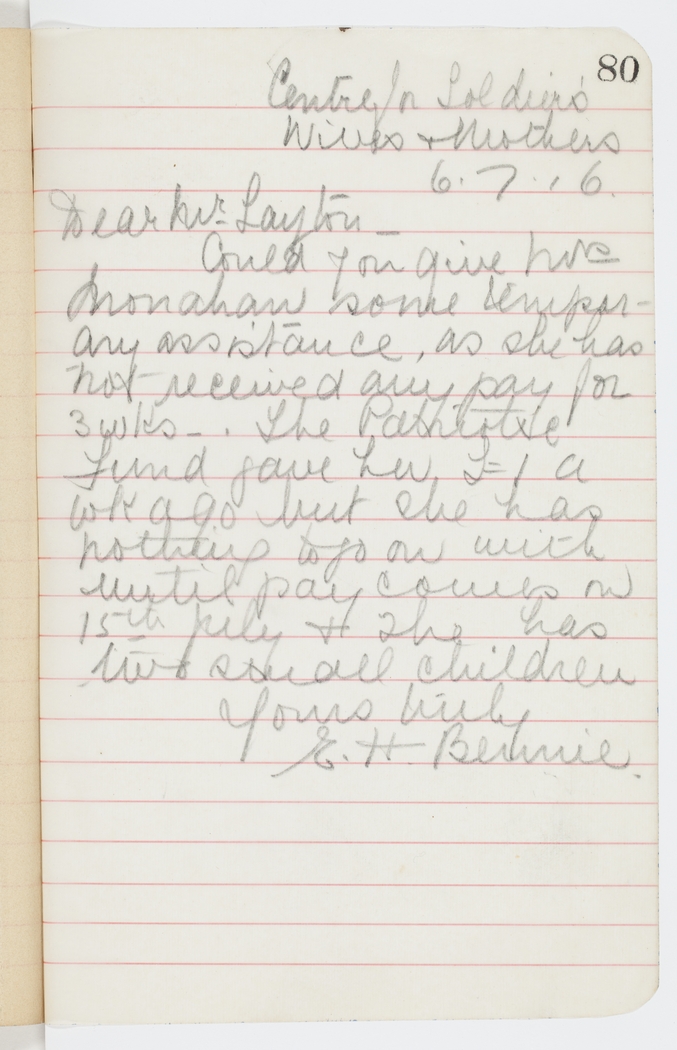 80
Centre for Soldiers'
Wives & Mothers
6.7.16.
Dear Mr Layton
Could you give Mrs
Monahan some tempor-
ary assistance, as she has
not received any pay for
3 wks -. The Patriotic
Fund gave her £1 a
wk ago but she has
nothing to go on with
until pay comes on
15th July & she has
two small children
Yours truly
E. H.